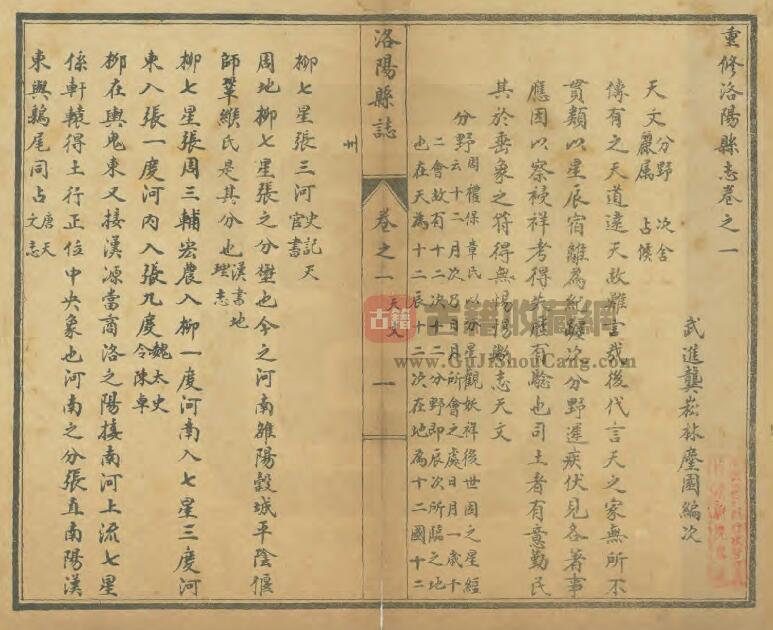 重修洛陽縣志卷之一
武進龔崧林麈園編次
天文分野 次舍 麗属 占候
傳有之天道遠天故難言哉後代言天之家無所不
貫類以星辰宿離為紀躔次分野遲疾伏見各著事
應因以察祲祥考得失應有驗也司土者有意勤民
其於垂象之符得無惕惕歟志天文
分野周禮保章氏以分星觀妖祥後世因之星經
云十二月次乃日月所會之處日月一歲十
二會故有十二次十二分野即辰次所臨之地
也在天為十二辰十二次在地為十二國十二
洛陽縣誌
卷之一
天文
一
州
柳七星張三河史記天官書
周地柳七星張之分壄也今之河南雒陽穀城平陰偃
師鞏緱氏是其分也漢書地理志
柳七星張周三輔宏農入柳一度河南入七星三度河
東入張一度河內入張九度魏太史令陳卓
柳在輿鬼東又接漢源當商洛之陽接南河上流七星
係軒轅得土行正位中央象也河南之分張直南陽漢
東與鶉尾同占唐天文志
古籍
古籍收藏網
www.GuJiShouCang.com